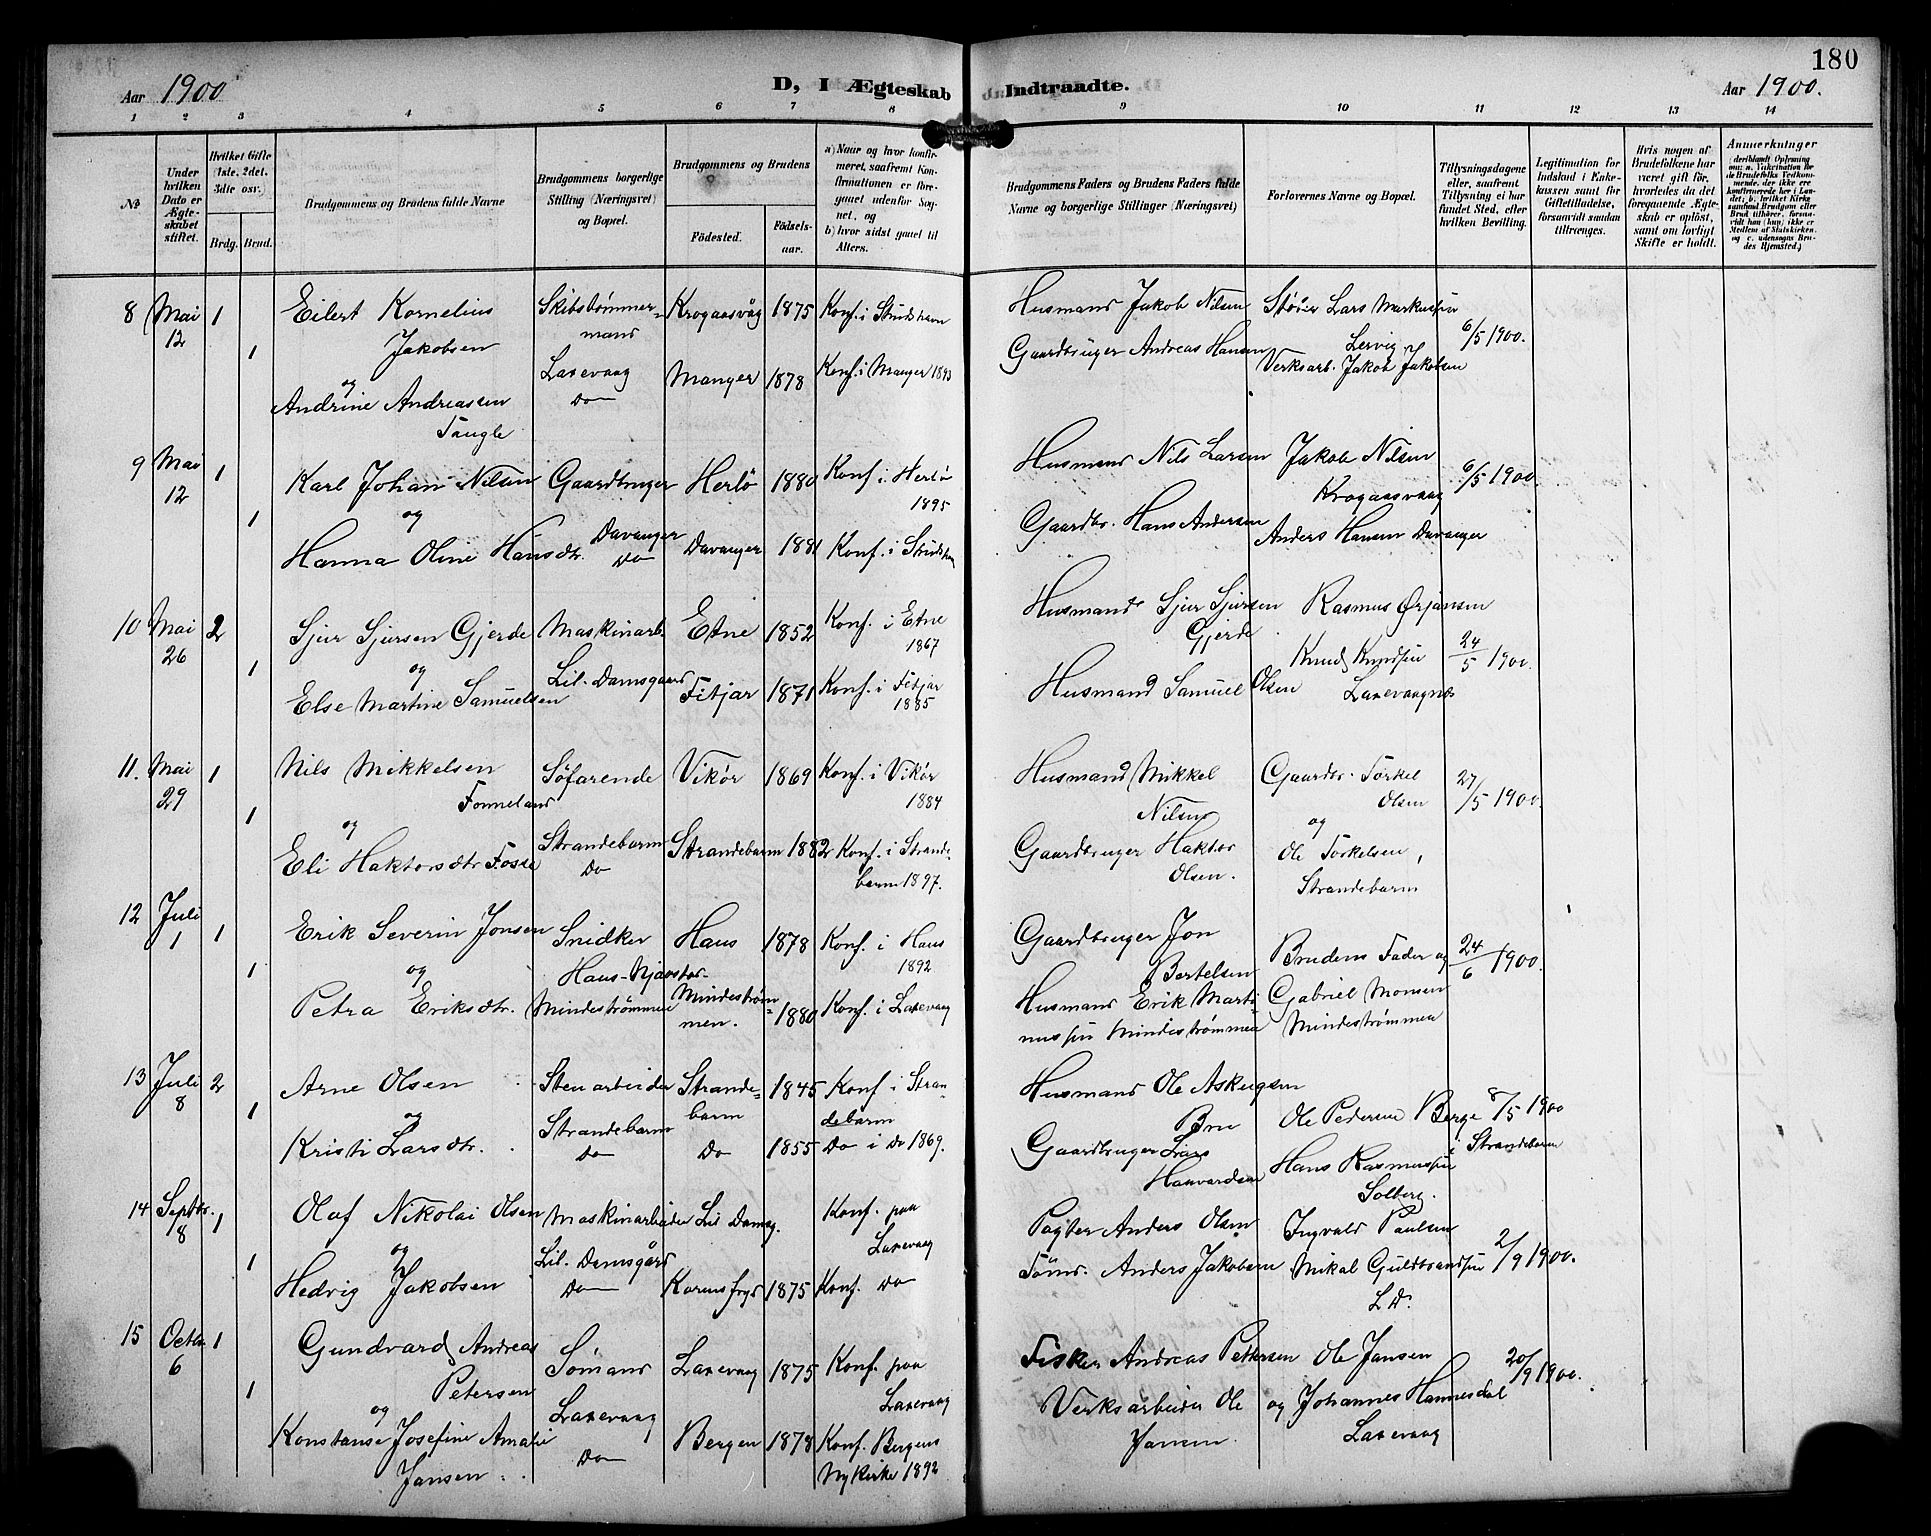 180
Aar 1900
D, I Ægteskab Indtraadte.
Aar 1900.
1 2 3 4 5 6 7 8 9 10 11 12 13 14
No
Under hvilken Dato er Ægteskabet stiftet.
Hvilket Gifte (1ste, 2det, 3die osv.)
Brdg. Brud.
Brudgommens og Brudens fulde Navne
Brudgommens borgerlige Stilling (Næringsvei) og Bopæl.
Brudgommens og Brudens
Fødested.
Fødselsaar.
a) Naar og hvor konfirmeret, saafremt Konfirmationen er foregaaet udenfor Sognet, og
b) hvor sidst gaaet til Alters.
Brudgommens Faders og Brudens Faders fulde Navne og borgerlige Stillinger (Næringsvei)
Forlovernes Navne og Bopæl.
Tillysningsdagene eller, saafremt Tillysning ei har fundet Sted, efter hvilken Bevilling.
Legitimation for Indskud i Enkekassen samt for Giftetilladelse, forsaavidt saadan tiltrænges.
Hvis nogen af Brudefolkene har været gift før, hvorledes da det foregaaende Ægteskab er opløst, samt om lovligt Skifte er holdt.
Anmerkninger
8 Mai 12 1 1
Eilert Kornelius Jakobsen
og
Andrine Andreassen Tangle
Skibstømmermand
Laxevaag
Do
Krogaasvåg 1875
Manger 1878
Konf. i Strudshavn
Konf. i Manger 1893
Husmand Jakob Nilsen
Gaardbruger Andreas Hansen
Lars Markuspin
Lervig
Verksarb. Jakob Jakobsen
6/5 1900.
9 Mai 12 1 1
Karl Johan Nilsen
og
Hanna Oline Hansdtr.
Gaardbruger
Davanger
Do
Herlø 1880
Davanger 1881
Konf. i Herlø 1895
Konf. i Strudshavn
Husmand Nils Larsen
Gaardbr. Hans Andersen
Jakob Nilsen
Krogaasvaag
Anders Hansen Davanger
6/5 1900
10 Mai 26 2 1
Sjur Sjursen Gjerde
og
Else Martine Samuelsen
Maskinarb.
Lil. Damsgaard
Etne 1852
Fitjar 1871
Konf. i Etne 1867
Konf. i Fitjar 1885
Husmand Sjur Sjursen Gjerde
Husmand Samuel Olsen
Rasmus Ørjansen
Knud Knudsen
Laxevaagnes
24/5 1900.
11. Mai 29 1 1
Nils Mikkelsen Fonneland
og
Eli Haktorsdtr Fosse
Søfarende
Strandebarm
Do
Vikør 1869
Strandebarm 1882
Konf. i Vikør 1884
Konf. i Strandebarm 1897.
Husmand Mikkel Nilsen
Gaardbruger Haktor Olsen.
Gaardbr. Torkel Olsen
og
Ole Torkelsen,
Strandebarm
27/5 1900.
12 Juli 1 1 1
Erik Severin Jonsen
og
Petra Eriksdtr.
Snidker
Haus-Njaastar
Mindestrømmen
Haus 1878
Mindestrømmen. 1880
Konf. i Haus 1892
Konf. i Laxevaag
Gaardbruger Jon Bertelsen
Husmand Erik Martinussen Mindestrømmen
Brudens Fader og
Gabriel Monsen
Mindestrømmen
24/6 1900.
13 Juli 8 2 1
Arne Olsen
og
Kristi Larsdtr.
Stenarbeider
Strandebarm
Do
Strandebarm 1845
Do 1855
Konf i Strandebarm
Do i Do 1869.
Husmand Ole
Gaardbruger Lars Haavardsen
Ole Pedersen Berge
Hans Rasmussen Solberg.
i Strandebarm
8/5 1900
14 Septbr. 8 1 1
Olaf Nikolai Olsen
og
Hedvig Jakobsen
Maskinarbeider
Lil. Damsgård
Do
Lil Damsg.
1875
Konf. paa Laxevaag
Konf. Do
Pagter Anders Olsen
Tømr. Anders Jakobsen
Ingvald Paulsen
Mikal Guldbrandsen
L D.
2/9 1900.
15 Octbr 6 1 1
Gundvard Andreas Petersen
og
Konstanse Josefine Amalie Jansen.
Sømand
Laxevaag
Do
Laxevaag 1875
Bergen 1878
Konf. paa Laxevaag
Konf. Bergens Nykirke 1892
Fisker Andreas Pettersen
Verksarbeider Ole Jansen.
Ole Jansen
og Johannes Hannesdal
Laxevaag
20/9 1900.